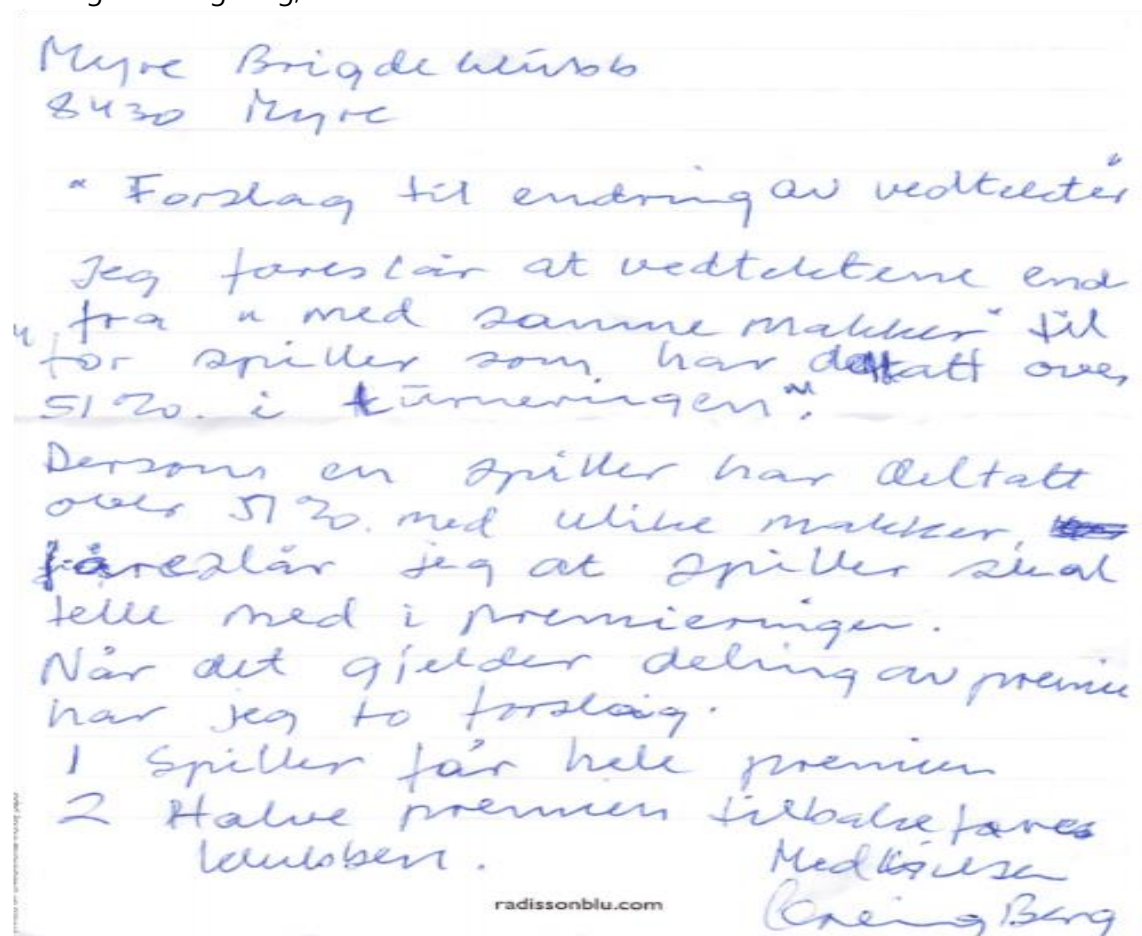 Myre Brigdeklubb
8430 Myre
"Forslag til endring av vedtekter"
Jeg foreslår at vedtektene end
fra "med samme makker" til
"for spiller som har deltatt over
51%. i turneringen".
Dersom en spiller har deltatt
over 51%. med ulike makker,
foreslår jeg at spiller skal
telle med i premieringen.
Når det gjelder deling av premie
har jeg to forslag.
1 Spiller får hele premien
2 Halve premien tilbakeføres
klubben.
Med hilsen
Berg
radissonblu.com